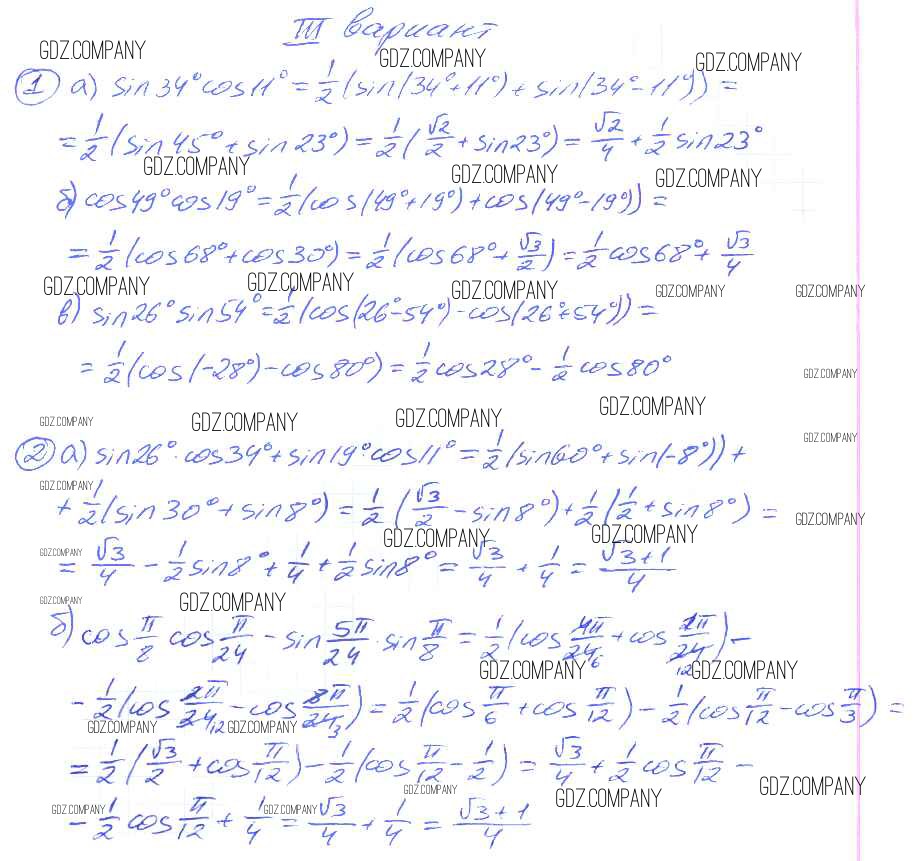 III вариант
GDZ.COMPANY GDZ.COMPANY GDZ.COMPANY
1 а) sin34°cos11° = 1/2(sin(34°+11°)+sin(34°-11°)) =
= 1/2(sin45°+sin23°) = 1/2(√2/2+sin23°) = √2/4 + 1/2 sin23°
GDZ.COMPANY GDZ.COMPANY GDZ.COMPANY
б) cos49°cos19° = 1/2(cos(49°+19°)+cos(49°-19°)) =
= 1/2(cos68°+cos30°) = 1/2(cos68°+√3/2) = 1/2 cos68° + √3/4
GDZ.COMPANY GDZ.COMPANY GDZ.COMPANY GDZ.COMPANY GDZ.COMPANY
в) sin26°sin54° = 1/2(cos(26°-54°)-cos(26°+54°)) =
= 1/2(cos(-28°)-cos80°) = 1/2 cos28° - 1/2 cos80°
GDZ.COMPANY
GDZ.COMPANY GDZ.COMPANY GDZ.COMPANY GDZ.COMPANY
GDZ.COMPANY
2 а) sin26°·cos34°+sin19°cos11° = 1/2(sin60°+sin(-8°)) +
GDZ.COMPANY
+ 1/2(sin30°+sin8°) = 1/2(√3/2-sin8°)+1/2(1/2+sin8°) =
GDZ.COMPANY GDZ.COMPANY GDZ.COMPANY
GDZ.COMPANY
= √3/4 - 1/2 sin8° + 1/4 + 1/2 sin8° = √3/4 + 1/4 = (√3+1)/4
GDZ.COMPANY GDZ.COMPANY
б) cos π/8 cos π/24 - sin 5π/24 sin π/8 = 1/2(cos 4π/24 6 + cos 2π/24 12) -
GDZ.COMPANY GDZ.COMPANY
- 1/2(cos 2π/24 12 - cos 8π/24 3) = 1/2(cos π/6 + cos π/12) - 1/2(cos π/12 - cos π/3) =
GDZ.COMPANY GDZ.COMPANY
= 1/2(√3/2 + cos π/12) - 1/2(cos π/12 - 1/2) = √3/4 + 1/2 cos π/12 -
GDZ.COMPANY GDZ.COMPANY GDZ.COMPANY
- 1/2 cos π/12 + 1/4 = √3/4 + 1/4 = (√3+1)/4
GDZ.COMPANY GDZ.COMPANY